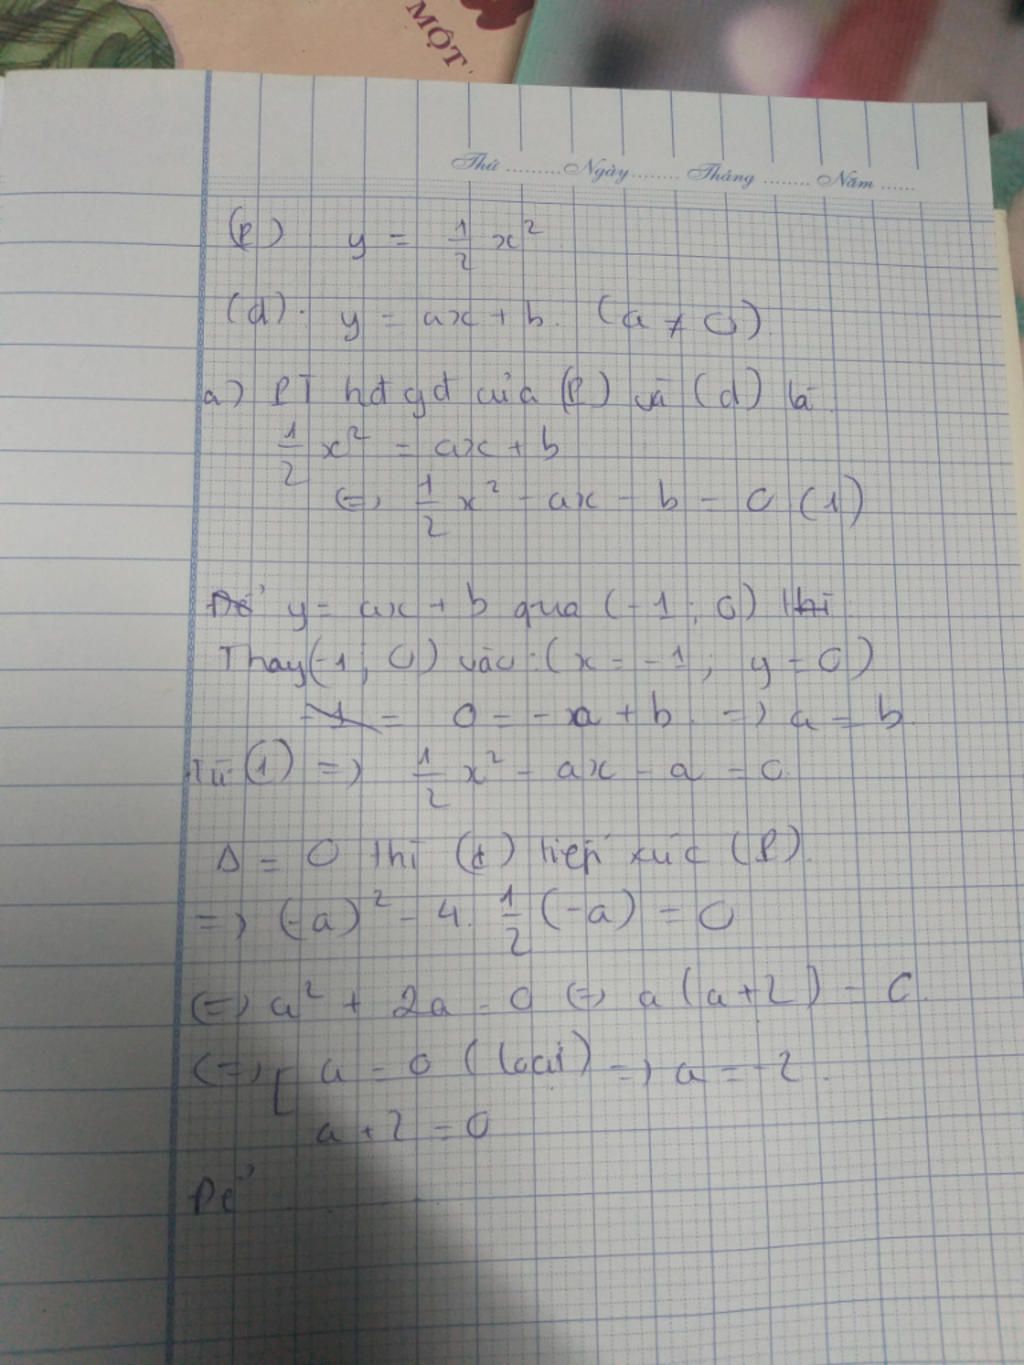 MỘT
Thứ ......... Ngày ........ Tháng ........ Năm ......
(P) y = 1/2 x²
(d): y = ax + b. (a ≠ 0)
a) PT hđgđ của (P) và (d) là
1/2 x² = ax + b
(=) 1/2 x² - ax - b = 0 (1)
Để y = ax + b qua (-1; 0) thì
Thay (-1; 0) vào: (x = -1; y = 0)
0 = -a + b => a = b
Từ (1) => 1/2 x² - ax - a = 0
Δ = 0 thì (d) tiếp xúc (P).
=> (-a)² - 4. 1/2 (-a) = 0
(=) a² + 2a = 0 (=) a(a+2) = 0
(=) [ a = 0 (loại) => a = -2.
a + 2 = 0
Để